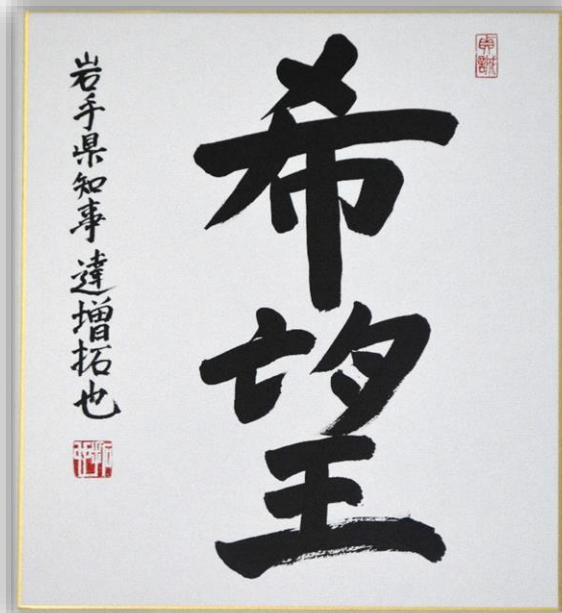 希望
岩手県知事 達増拓也